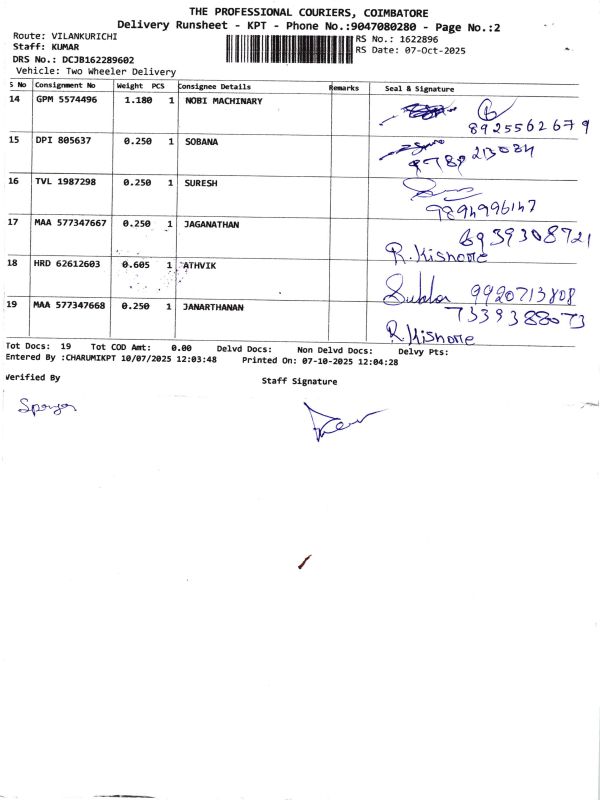 THE PROFESSIONAL COURIERS, COIMBATORE
Delivery Runsheet - KPT - Phone No.:9047080280 - Page No.:2
Route: VILANKURICHI
RS No.: 1622896
Staff: KUMAR
RS Date: 07-Oct-2025
DRS No.: DCJB162289602
Vehicle: Two Wheeler Delivery
S No Consignment No Weight PCS Consignee Details Remarks Seal & Signature
14 GPM 5574496 1.180 1 NOBI MACHINARY
8925562679
15 DPI 805637 0.250 1 SOBANA
9789 213084
16 TVL 1987298 0.250 1 SURESH
9894996147
17 MAA 577347667 0.250 1 JAGANATHAN
6939308721
R. Kishore
18 HRD 62612603 0.605 1 ATHVIK
9920713808
19 MAA 577347668 0.250 1 JANARTHANAN
7339388073
R. Kishore
Tot Docs: 19 Tot COD Amt: 0.00 Delvd Docs: Non Delvd Docs: Delvy Pts:
Entered By :CHARUMIKPT 10/07/2025 12:03:48 Printed On: 07-10-2025 12:04:28
Verified By
Staff Signature